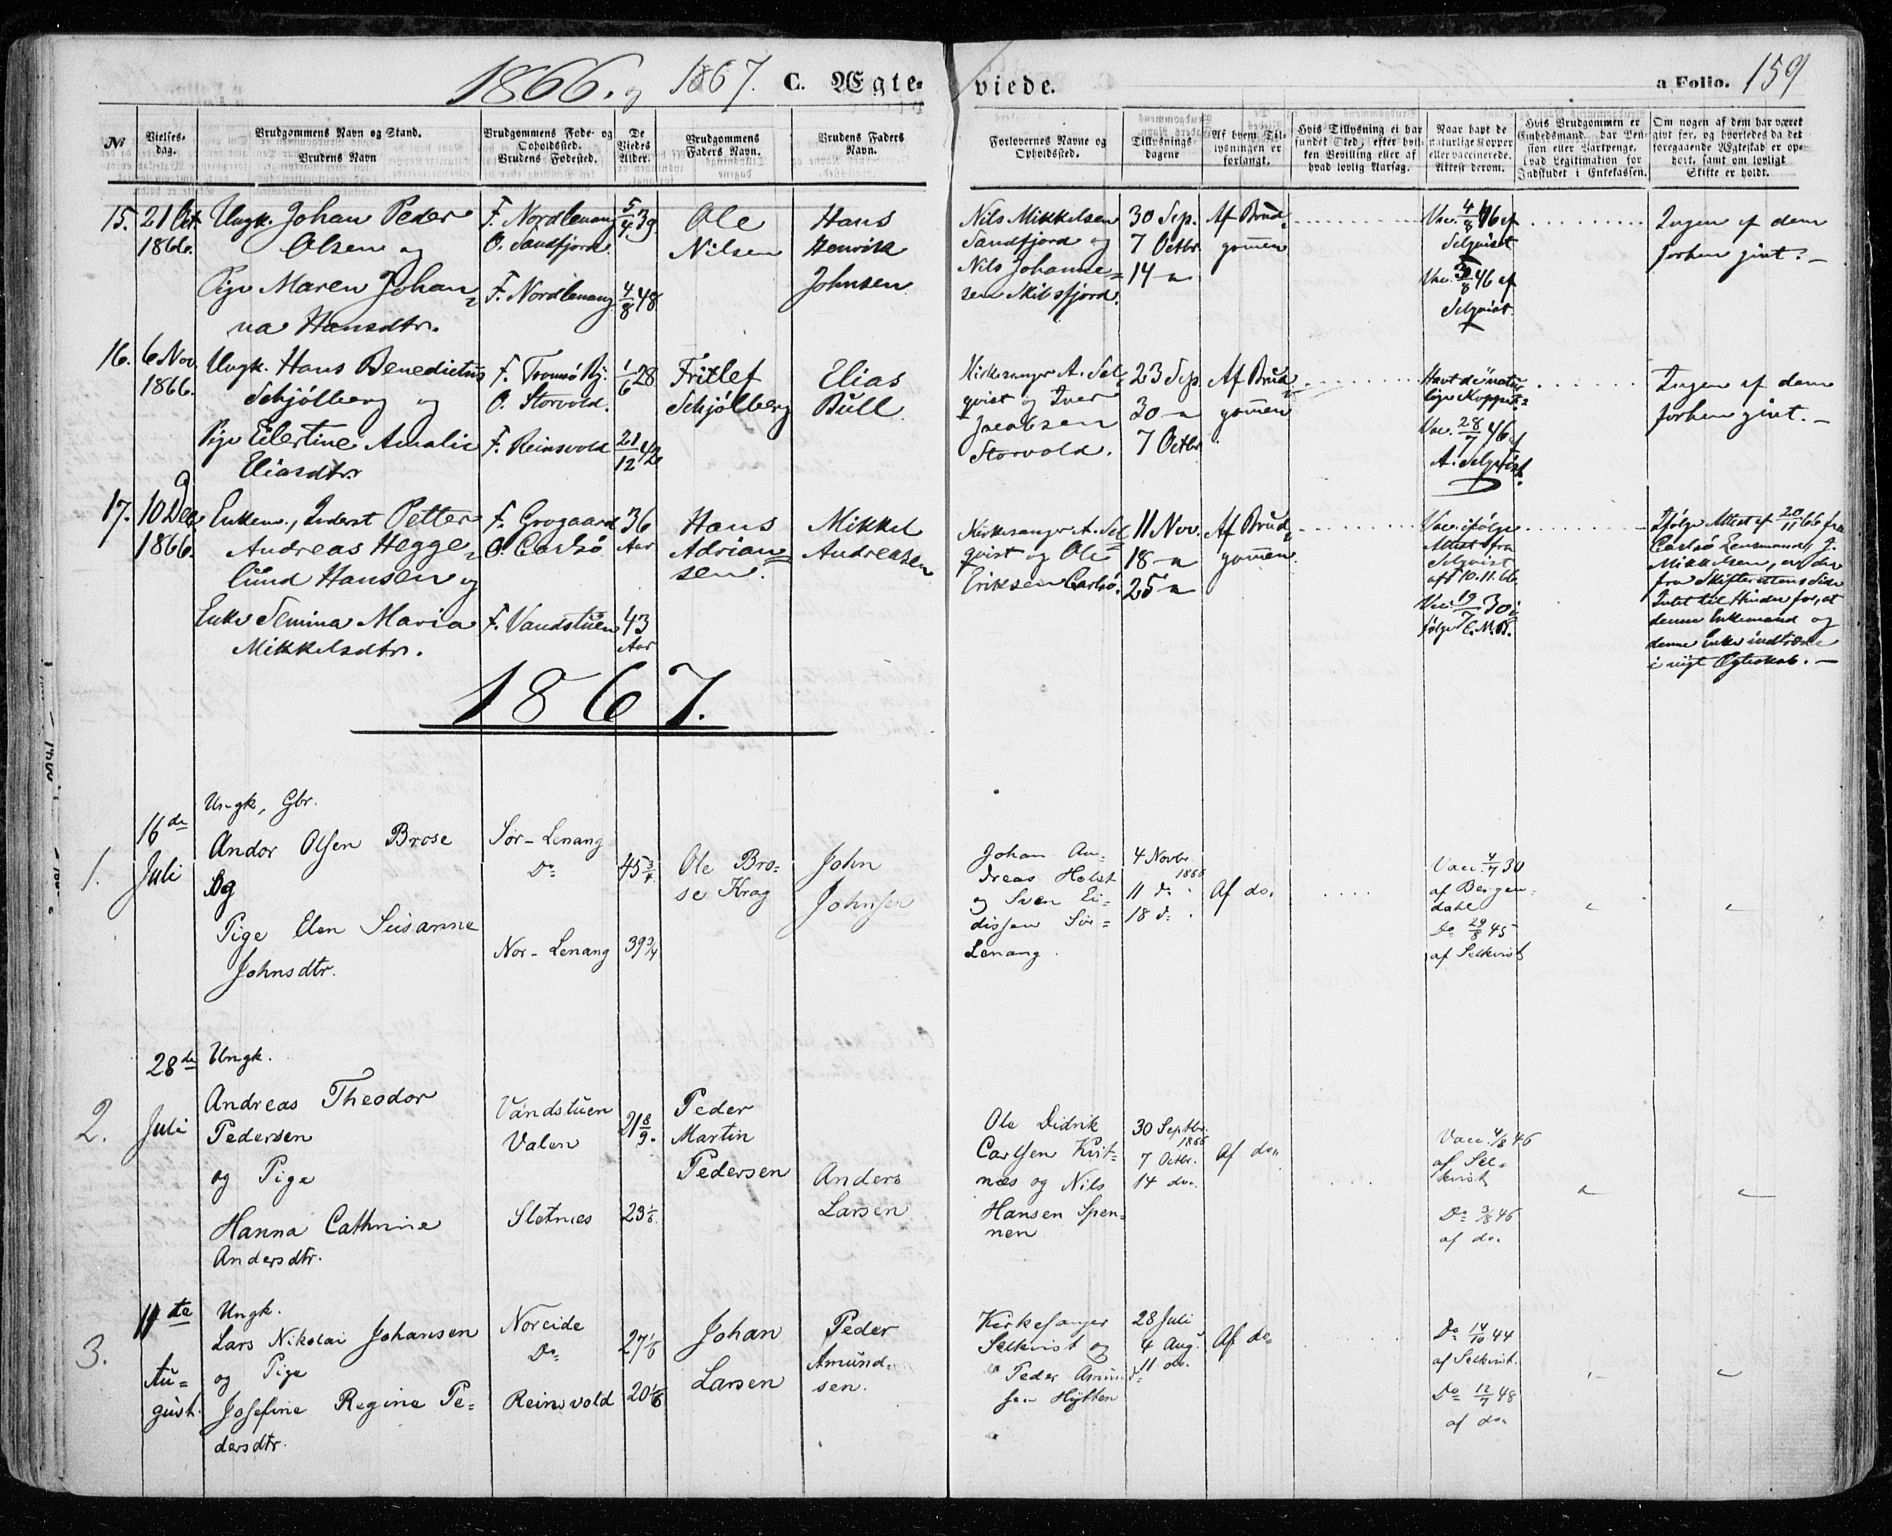 1866. og 1867. C. Ægteviede. a Folio. 159
No
Vielses-
dag.
Brudgommens Navn og Stand.
Brudens Navn
Brudgommens Føde- og
Opholdssted.
Brudens Fødested.
De
Viedes
Alder.
Brudgommens
Faders Navn.
Brudens Faders
Navn.
Forlovernes Navne og
Opholdssted.
Tillysnings-
dagene
Af hvem Til-
lysningen er
forlangt.
Hvis Tillysning ei har
fundet Sted, efter hvil-
ken Bevilling eller af
hvad lovlig Aarsag.
Naar havt de
naturlige Kopper
eller vaccinerede.
Attest derom.
Hvis Brudgommen er
Embedsmand, har Pen-
sion eller Vartpenge.
hvad Legitimation for
Indskudet i Enkekassen.
Om nogen af dem har været
gift før, og hvorledes da det
foregaaende Ægteskab er op-
hørt, samt om lovligt
Skifte er holdt.
15.
21 Oct.
1866.
Ungk. Johan Peder
Olsen og
Pige Maren Johan-
na Hansdtr.
F. Nordlenang
O. Sandfjord.
F. Nordlenang
5/4 39
4/8 48
Ole
Nilsen
Hans
Henrik
Johnsen
Nils Mikkelsen
Sandfjord og
Nils Johanne-
sen
30 Sep.
7 Octbr.
14 -
Af Brud-
gommen
Vac. 4/8 46 af
Selqvist
Vac. 46 af
Selqvist
Ingen af dem
forhen givt. -
16.
6 Nov.
1866.
Ungk. Hans Benedictus
Schjölberg og
Pige Eilertine Amalie
Eliasdtr.
F. Tromsö By.
O. Storvold.
F. Reinsvold
1/6 28
21/12 42
Fritlef
Schjölberg
Elias
Bull
Kirkesanger A. Sel-
qvist og Iver
Jacobsen
Storvold.
23 Sep
30 -
7 Octbr.
Af Brud-
gommen
Havt de natur-
lige Kopper.
Vac. 28/7 46 af
A. Selqvist.
Ingen af dem
forhen givt. -
17.
10 Dec.
1866.
Enkem., Inderst Petter
Andreas Hegge-
lund Hansen og
Enke Semina Maria
Mikkelsdtr.
F. Grogaard
O. Carlsö
F. Vandstuen
36
Aar
43
Aar
Hans
Adrian-
sen.
Mikkel
Andreasen
Kirkesanger A. Sel-
qvist og Ole
Eriksen Carlsö.
11 Nov.
18 -
25 -
Af Brud-
gommen.
Vac. ifölge
Attest fra
Selqvist
aff 10.11.66
Vac. 19/7 30 i-
fölge
Ifölge Attest af 20/11 66 fra
Carlsö Lensmand, J.
Mikkelsen, er der
fra Skifterettens Side
Intet til Hinder for, at
denne Enkemand og
denne Enke indtræde
i nyt Ægteskab. -
1867.
1.
16de
Juli
Ungk, Gbr.
Andor Olsen Brose
Og
Pige Elen Susanne
Johnsdtr.
Sør-Lenang
Do
Nor-Lenang
45 3/4
39 3/4
Ole Bro-
se Krag
John
Johnsen
Johan An-
dreas Holst
og Sven Ei-
dissen Sør-
Lenang.
4 Novbr.
1866
11 do
18 do
Af do.
Vacc. 4/7 30
af Bergen-
dahl
Do 29/8 45
af Selkvist
2.
28de
Juli
Ungk.
Andreas Theodor
Pedersen
og Pige
Hanna Cathrine
Andersdtr.
Vandstuen
Valen
Sletnæs
21 8/9.
23 1/6.
Peder
Martin
Pedersen
Anders
Larsen
Ole Didrik
Carlsen Kvit-
næs og Nils
Hansen Spen-
nen
30 Septbr.
1866
7 Octbr.
14 do.
Af do.
Vacc. 4/8 46
af Sel-
kvist
Do 3/8 46
af do.
3.
11te
Au-
gust.
Ungk.
Lars Nikolai Johansen
og Pige
Josefine Regine Pe-
dersdtr.
Noreide
Do
Reinsvold
27 1/6
20 1/6
Johan
Larsen
Peder
Amund-
sen.
Kirkesanger
Selkvist og
Peder Amun-
sen Hytten
28 Juli
4 Aug.
11 do.
Af do
Do 14/10 44
af Selkvist.
Do 12/7 48
af do.